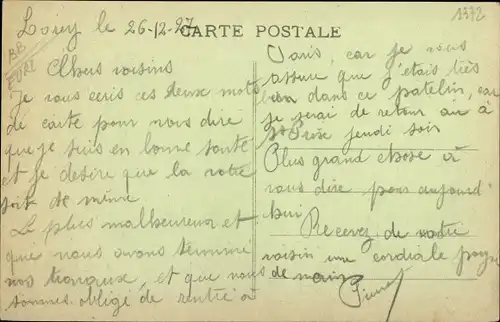 1372
le 26-12-27
CARTE POSTALE
BB
EURE
Chers voisins
Je vous ecris ces deux mots
de carte pour vous dire
que je suis en bonne santé
et je desire que la votre
soit de même
Le plus malheureux et
que nous avons terminé
nos travaux, et que nous
sommes obligé de rentré à
Paris, car je vous
assure que j'etais très
bien dans ce patelin, car
je serai de retour au à
jeudi soir
Plus grand chose à
vous dire pour aujourd
hui
Recevez de votre
voisin une cordiale poignée
de main
Pierre